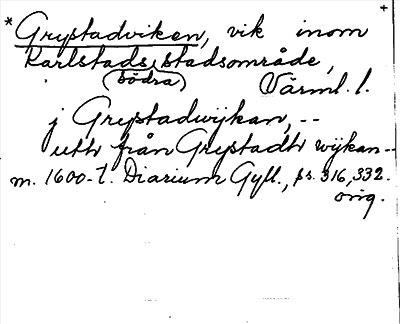 * Grystadviken, vik inom +
Karlstads stadsområde,
(södra) Värml. l.
j Grystadwÿkan, --
utt från Grystadh wÿkan --
m. 1600-t. Diarium Gyll., ps. 316, 332.
orig.